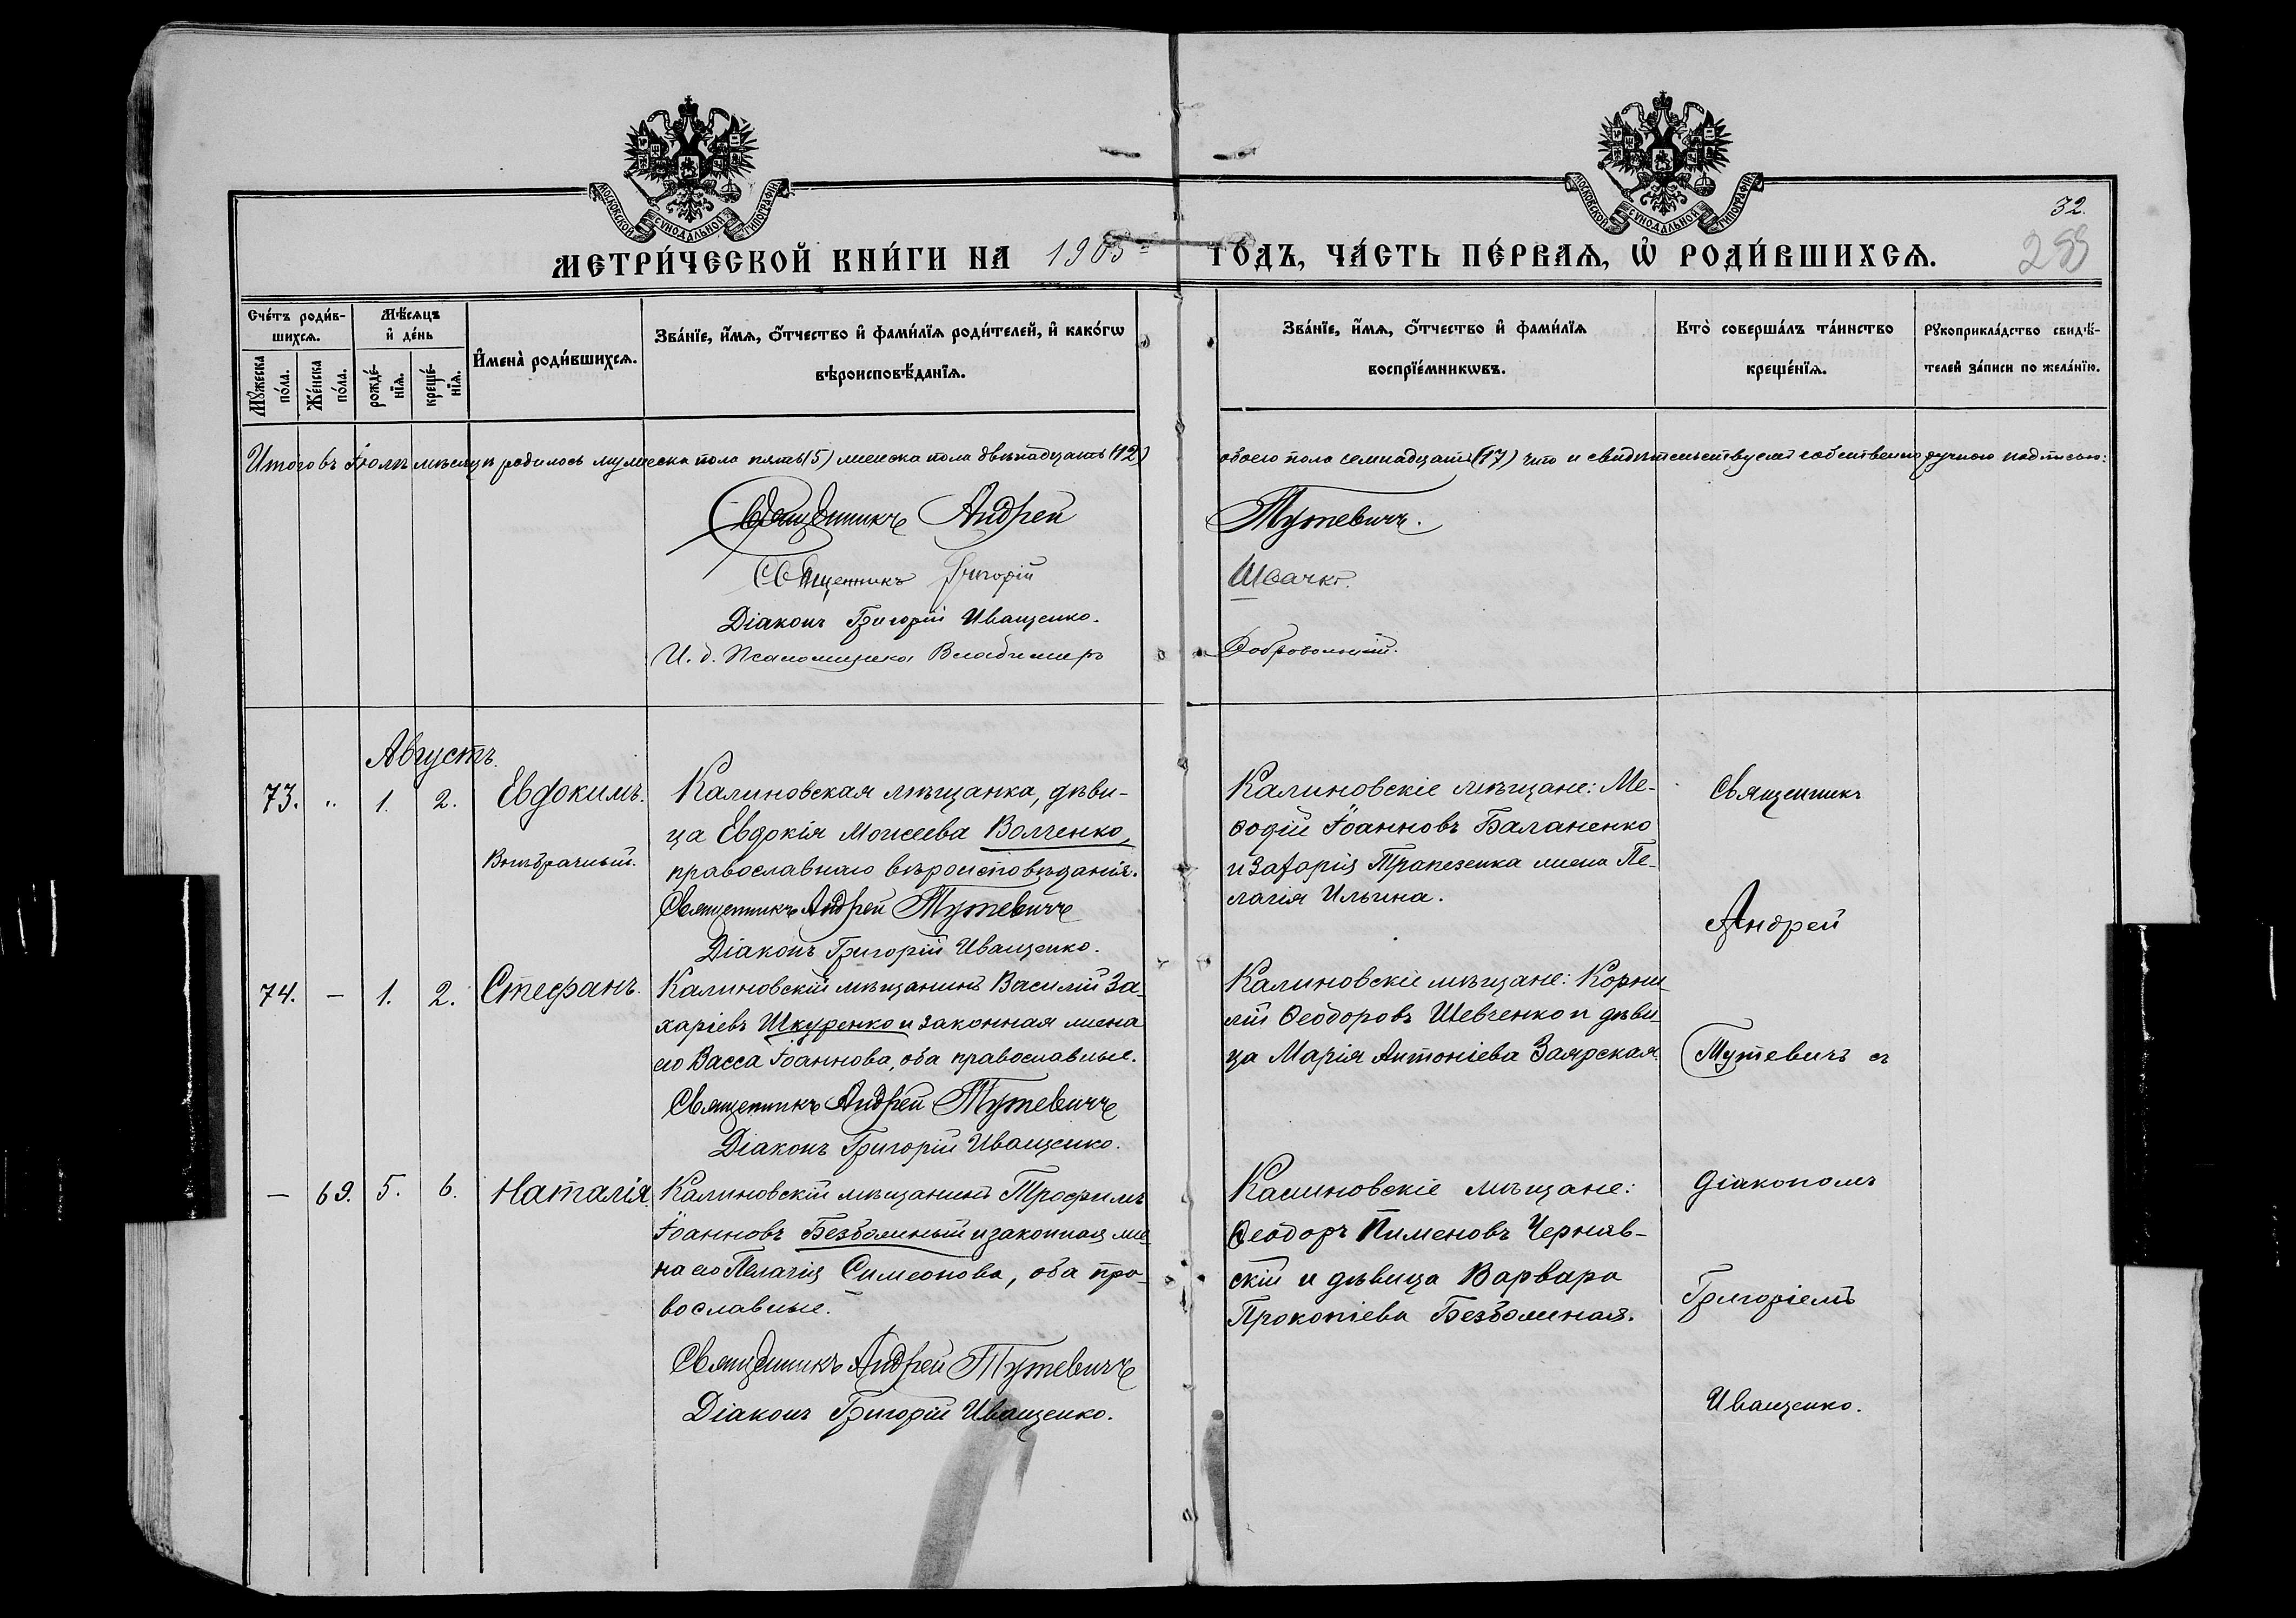 МОСКОВСКОЙ СѴНОДАЛЬНОЙ ТИПОГРАФІИ
МОСКОВСКОЙ СѴНОДАЛЬНОЙ ТИПОГРАФІИ
32.
МЕТРИ́ЧЕСКОЙ КНИ́ГИ НА 1905 ГО́ДЪ, ЧА́СТЬ ПЕ́РВАѦ, Ѡ҆ РОДИ́ВШИХСѦ.
Сче́тъ роди́в-
шихсѧ.
Мꙋ́жеска
по́ла.
Же́нска
по́ла.
Мѣ́сѧцъ
и҆ де́нь
рожде́-
нїѧ.
креще́-
нїѧ.
И҆мена̀ роди́вшихсѧ.
Зва́нїе, и҆́мѧ, ѻ҆́тчество и҆ фами́лїѧ роди́телей, и҆ како́гѡ
вѣроисповѣ́данїѧ.
Зва́нїе, и҆́мѧ, ѻ҆́тчество и҆ фами́лїѧ
воспрїе́мникѡвъ.
Кто̀ соверша́лъ та́инство
креще́нїѧ.
Рꙋкоприкла́дство свидѣ́-
телей за́писи по жела́нїю.
Итого въ Іюлѣ мѣсяцѣ родилось мужеска пола пять (5) женска пола двѣнадцать (12) обоего пола семнадцать (17) что и свидѣтельствуемъ собственноручною подписью:
Священникъ Андрей Тутевичъ.
Священникъ Григорій Ивачко.
Діаконъ Григорій Иващенко.
И. д. Псаломщика Владимиръ Добровольскій.
Августъ.
73. " 1. 2. Евдокимъ.
Внѣбрачный.
Калиновская мѣщанка, дѣви-
ца Евдокія Моисеева Волченко,
православнаго вѣроисповѣданія.
Священникъ Андрей Тутевичъ
Діаконъ Григорій Иващенко.
Калиновскіе мѣщане: Ме-
ѳодій Іоанновъ Баланенко
и Захарія Трапезенка жена Пе-
лагія Ильина.
Священникъ
Андрей
74. – 1. 2. Стефанъ.
Калиновскій мѣщанинъ Василій За-
харіевъ Шкуренко и законная жена
его Васса Іоаннова, оба православные.
Священникъ Андрей Тутевичъ
Діаконъ Григорій Иващенко.
Калиновскіе мѣщане: Корни-
лій Ѳеодоровъ Шевченко и дѣви-
ца Марія Антоніева Заярская.
Тутевичъ съ
– 69. 5. 6. Наталія.
Калиновскій мѣщанинъ Трофимъ
Іоанновъ Безболиный и законная же-
на его Пелагія Симеонова, оба пра-
вославные.
Священникъ Андрей Тутевичъ
Діаконъ Григорій Иващенко.
Калиновскіе мѣщане:
Ѳеодоръ Пименовъ Черняв-
скій и дѣвица Варвара
Прокопіева Безболиная.
діакономъ
Григоріемъ
Иващенко.